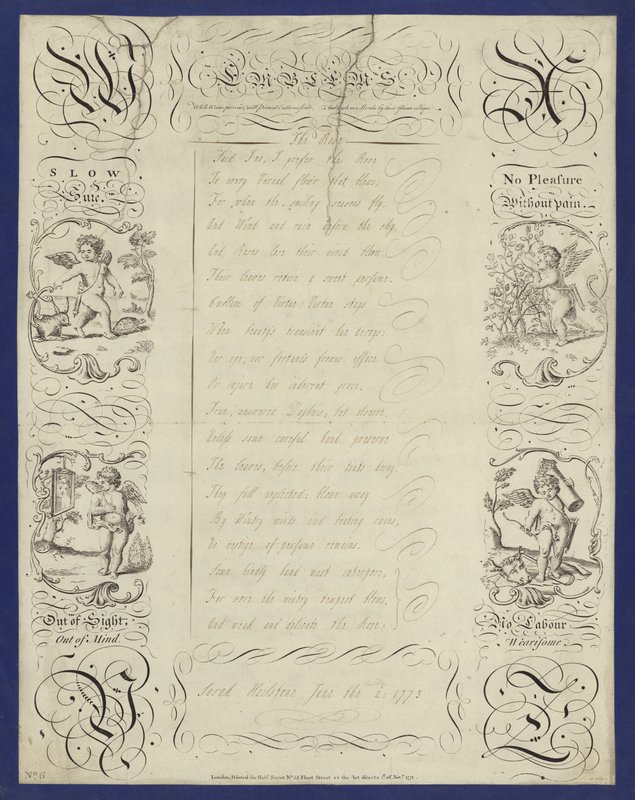 EMBLEMS
The Rose
Said Ino, I prefer the Rose
To every Vernal flow'r that blows;
For when the smiling seasons fly,
And Wind and rain deform the sky,
And Roses lose their vivid bloom,
Their leaves retain a sweet perfume.
Emblem of Virtue! Virtue stays
When beauty's transient hue decays:
Nor age, nor fortune's frowns efface
Or injure her inherent grace.
True, answered Daphnis, but observe,
Unless some careful hand preserve
The leaves, before their tints decay,
They fall neglected: blown away
By Wintry winds and beating rains,
No vestige of perfume remains.
Some kindly hand must interpose,
For sore the wintry tempest blows,
And weak and delicate the Rose.
Sarah June the 2: 1773
SLOW
Sure.
Out of Sight,
Out of Mind.
No Pleasure
Without pain.
No Labour
Wearisome.
No. 6
London, Printed for Robt. Sayer No. 53 Fleet Street as the Act directs 1st of Novr. 1771.